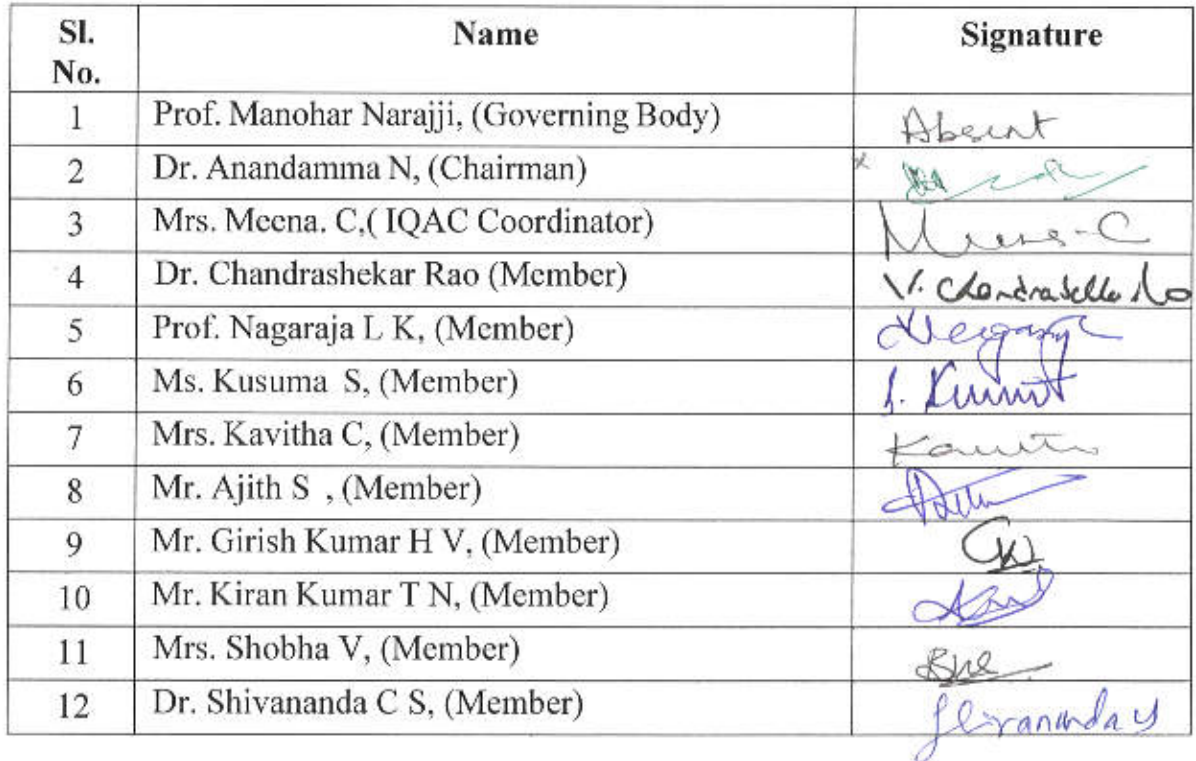 Sl. No. Name Signature
1 Prof. Manohar Narajji, (Governing Body) Absent
2 Dr. Anandamma N, (Chairman)
3 Mrs. Meena. C,( IQAC Coordinator) Meena-C
4 Dr. Chandrashekar Rao (Member)
5 Prof. Nagaraja L K, (Member)
6 Ms. Kusuma S, (Member)
7 Mrs. Kavitha C, (Member)
8 Mr. Ajith S , (Member)
9 Mr. Girish Kumar H V, (Member)
10 Mr. Kiran Kumar T N, (Member)
11 Mrs. Shobha V, (Member)
12 Dr. Shivananda C S, (Member)